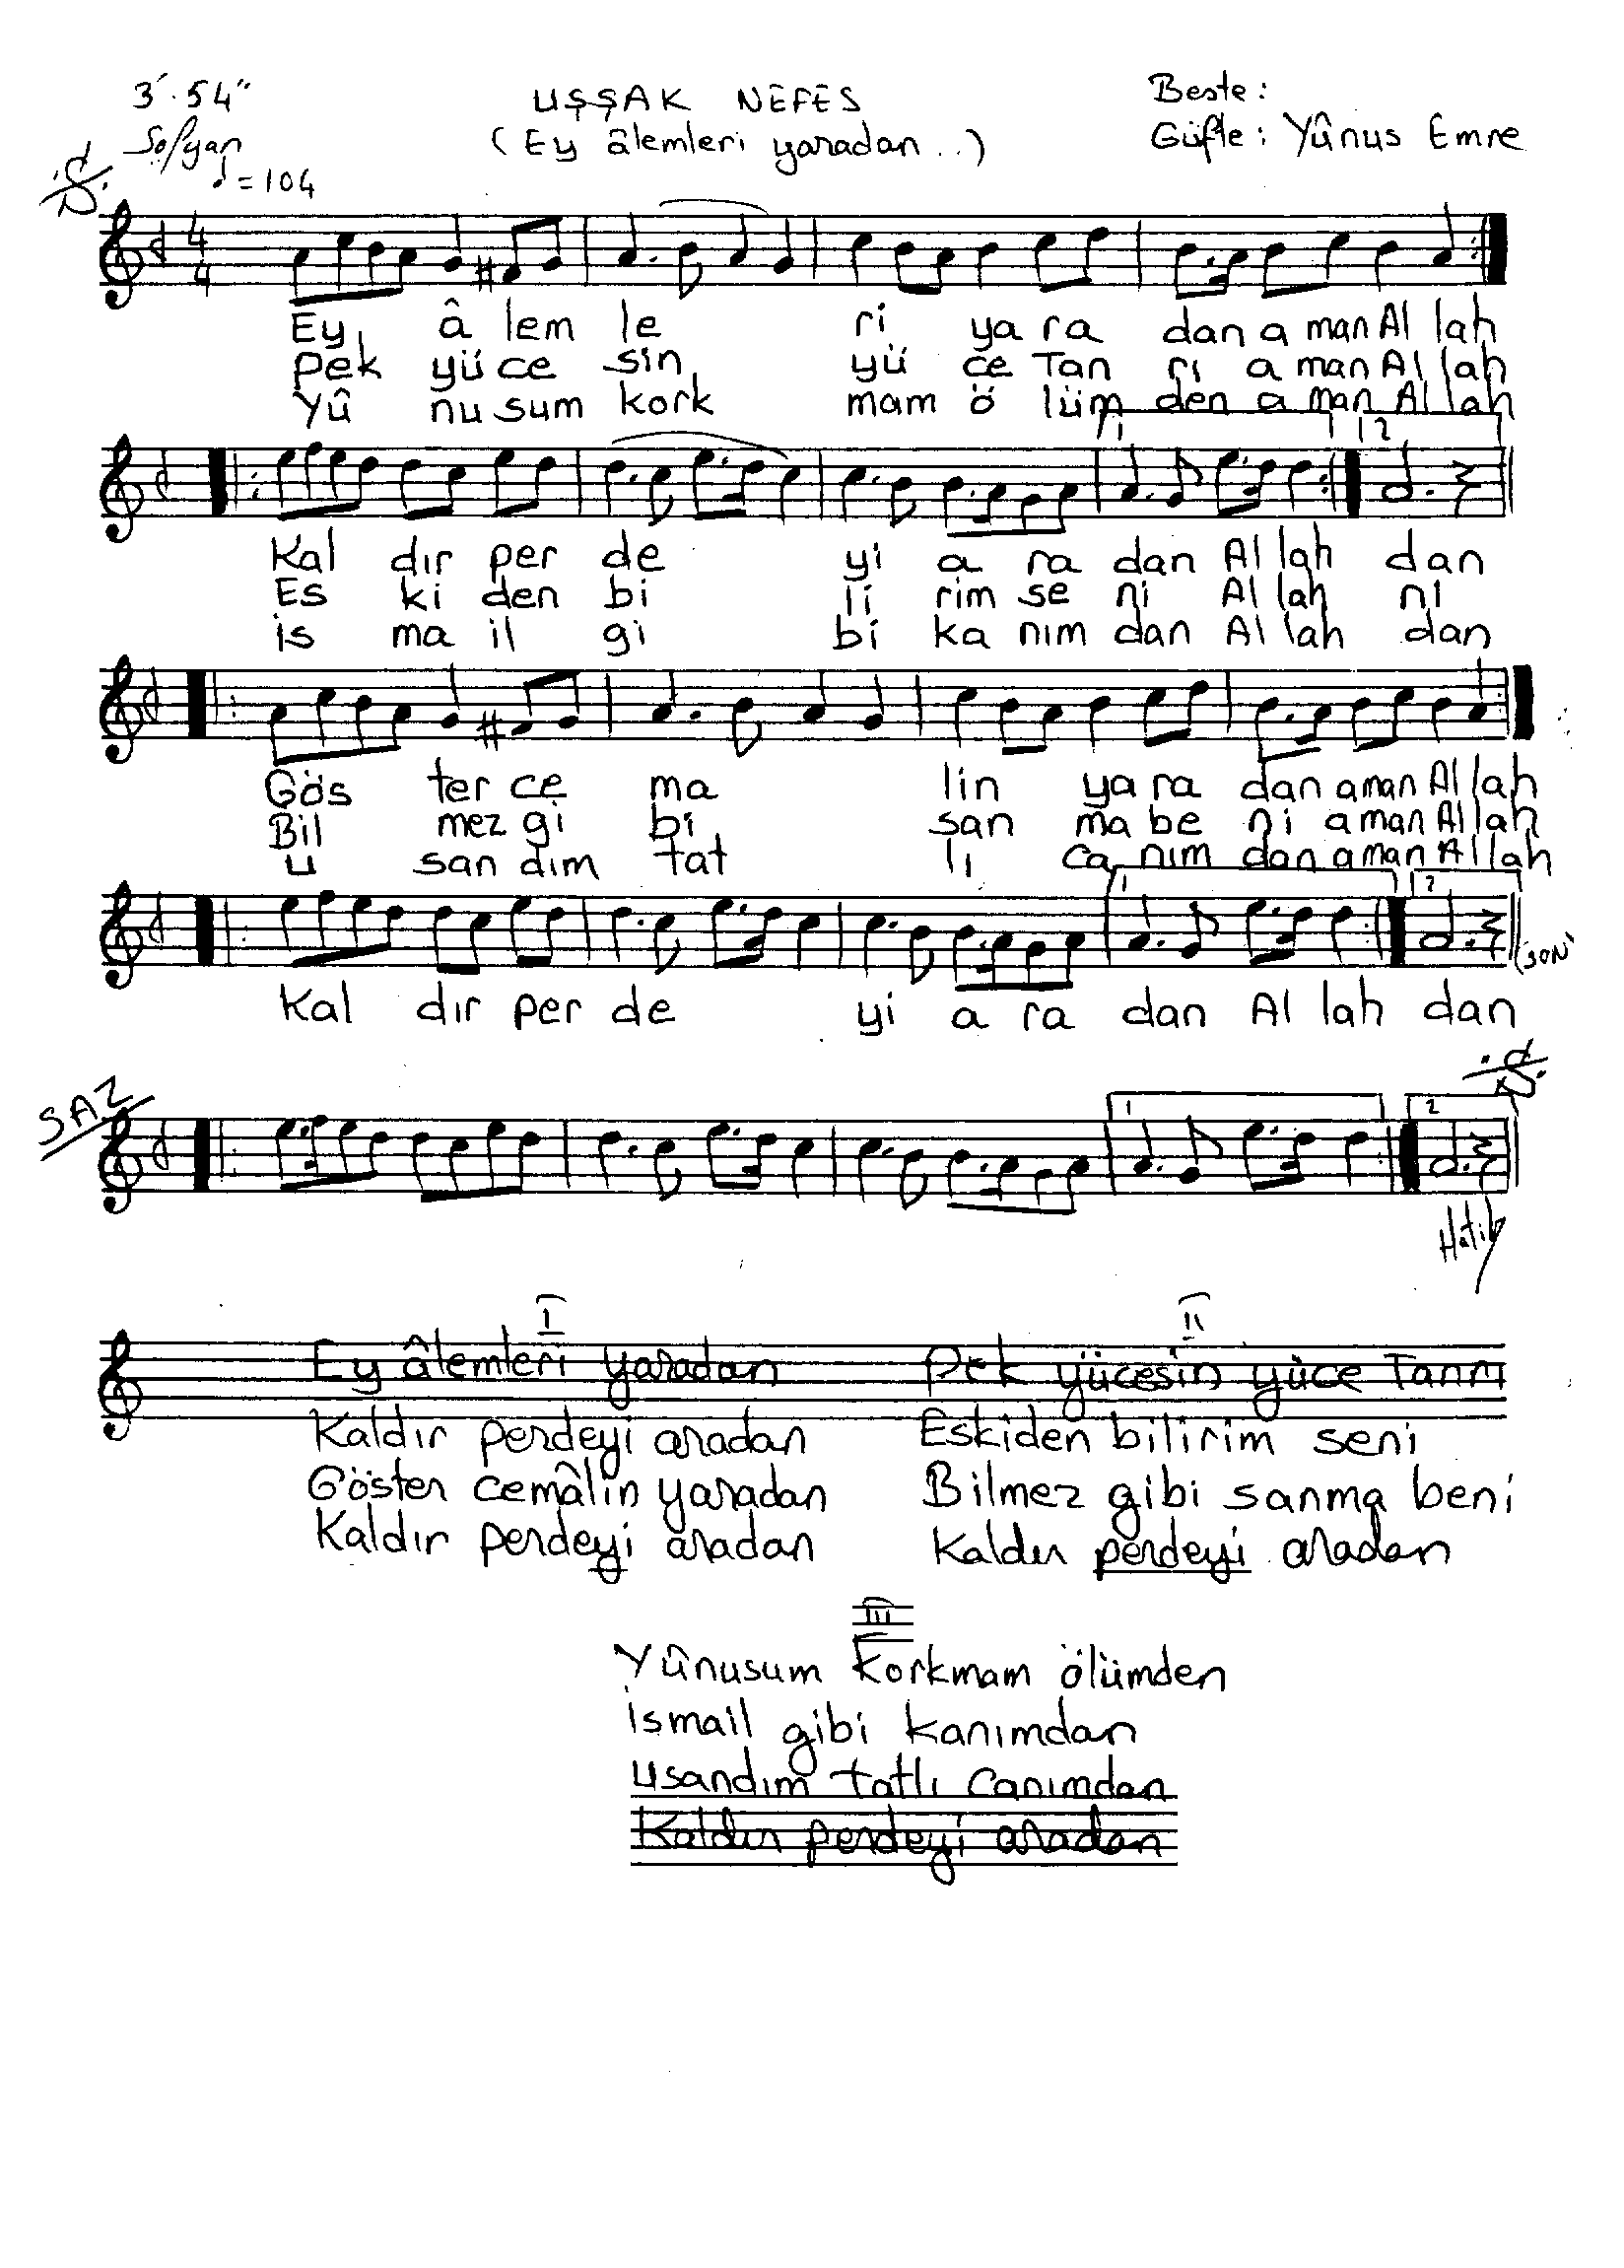 3´.54"
UŞŞAK NEFES
Beste:
Sofyan
(Ey âlemleri yaradan..)
Güfte: Yûnus Emre
= 104
4
4
Ey â lem le ri ya ra dan a man Al lah
Pek yü ce sin yü ce Tan rı a man Al lah
Yû nu sum kork mam ö lüm den a man Al lah
1 2
Kal dır per de yi a ra dan Al lah dan
Es ki den bi li rim se ni Al lah ni
is ma il gi bi ka nım dan Al lah dan
Gös ter ce ma lin ya ra dan aman Al lah
Bil mez gi bi san ma be ni aman Al lah
u san dım tat lı ca nım dan aman Al lah
1 2
(SON)
Kal dır per de yi a ra dan Al lah dan
SAZ
1 2
Hatib
I
Ey âlemleri yaradan
Kaldır perdeyi aradan
Göster cemâlin yaradan
Kaldır perdeyi aradan
II
Pek yücesin yüce Tanrı
Eskiden bilirim seni
Bilmez gibi sanma beni
Kaldır perdeyi aradan
III
Yûnusum korkmam ölümden
İsmail gibi kanımdan
usandım tatlı canımdan
Kaldır perdeyi aradan